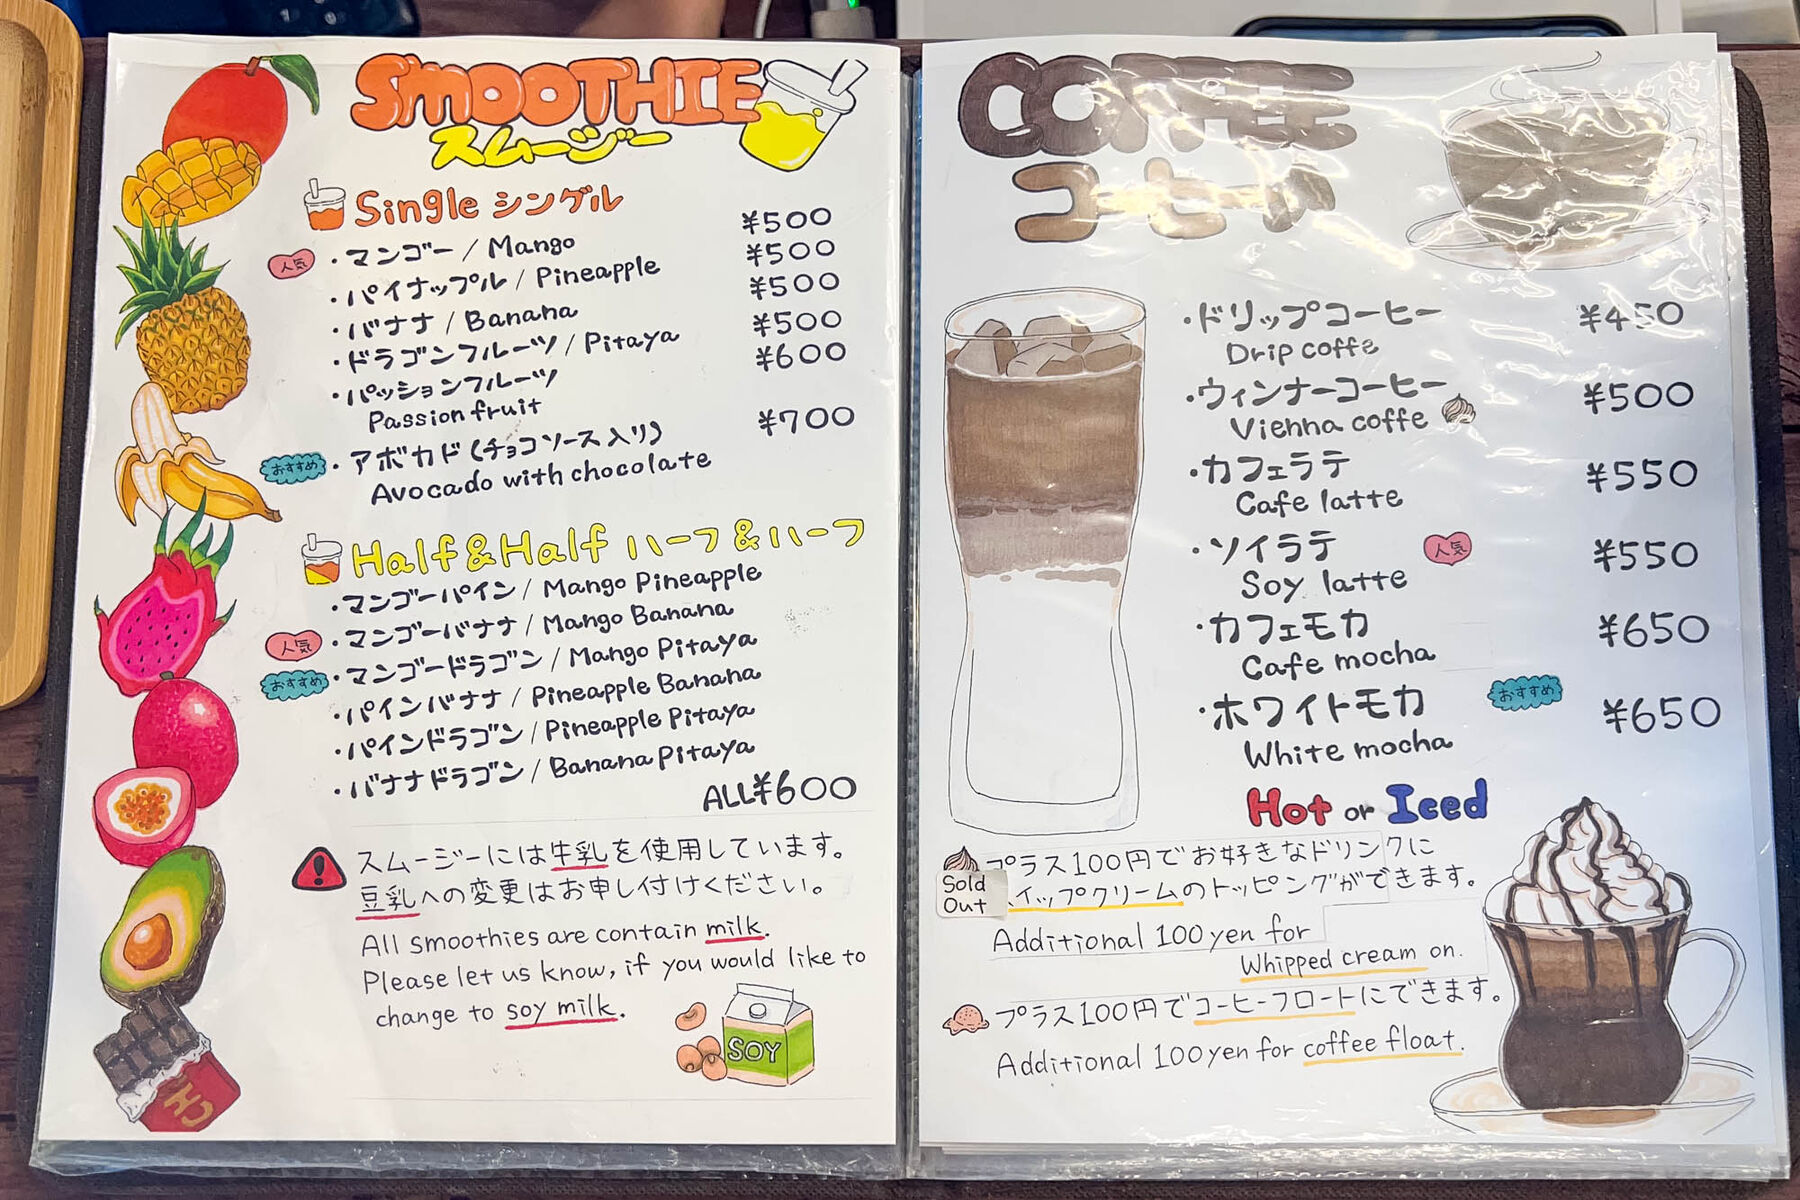 SMOOTHIE
スムージー
Single シングル
人気 ・マンゴー / Mango ¥500
・パイナップル / Pineapple ¥500
・バナナ / Banana ¥500
・ドラゴンフルーツ / Pitaya ¥500
・パッションフルーツ ¥600
Passion fruit
おすすめ ・アボカド (チョコソース入り) ¥700
Avocado with chocolate
Half&Half ハーフ&ハーフ
・マンゴーパイン / Mango Pineapple
人気 ・マンゴーバナナ / Mango Banana
おすすめ ・マンゴードラゴン / Mango Pitaya
・パインバナナ / Pineapple Banana
・パインドラゴン / Pineapple Pitaya
・バナナドラゴン / Banana Pitaya
ALL¥600
スムージーには牛乳を使用しています。
豆乳への変更はお申し付けください。
All smoothies are contain milk.
Please let us know, if you would like to
change to soy milk.
SOY
CH
COFFEE
コーヒー
・ドリップコーヒー ¥450
Drip coffe
・ウィンナーコーヒー ¥500
Vienna coffe
・カフェラテ ¥550
Cafe latte
・ソイラテ 人気 ¥550
Soy latte
・カフェモカ ¥650
Cafe mocha
・ホワイトモカ おすすめ ¥650
White mocha
Hot or Iced
プラス100円でお好きなドリンクに
Sold Out イップクリームのトッピングができます。
Additional 100yen for
Whipped cream on.
プラス100円でコーヒーフロートにできます。
Additional 100yen for coffee float.